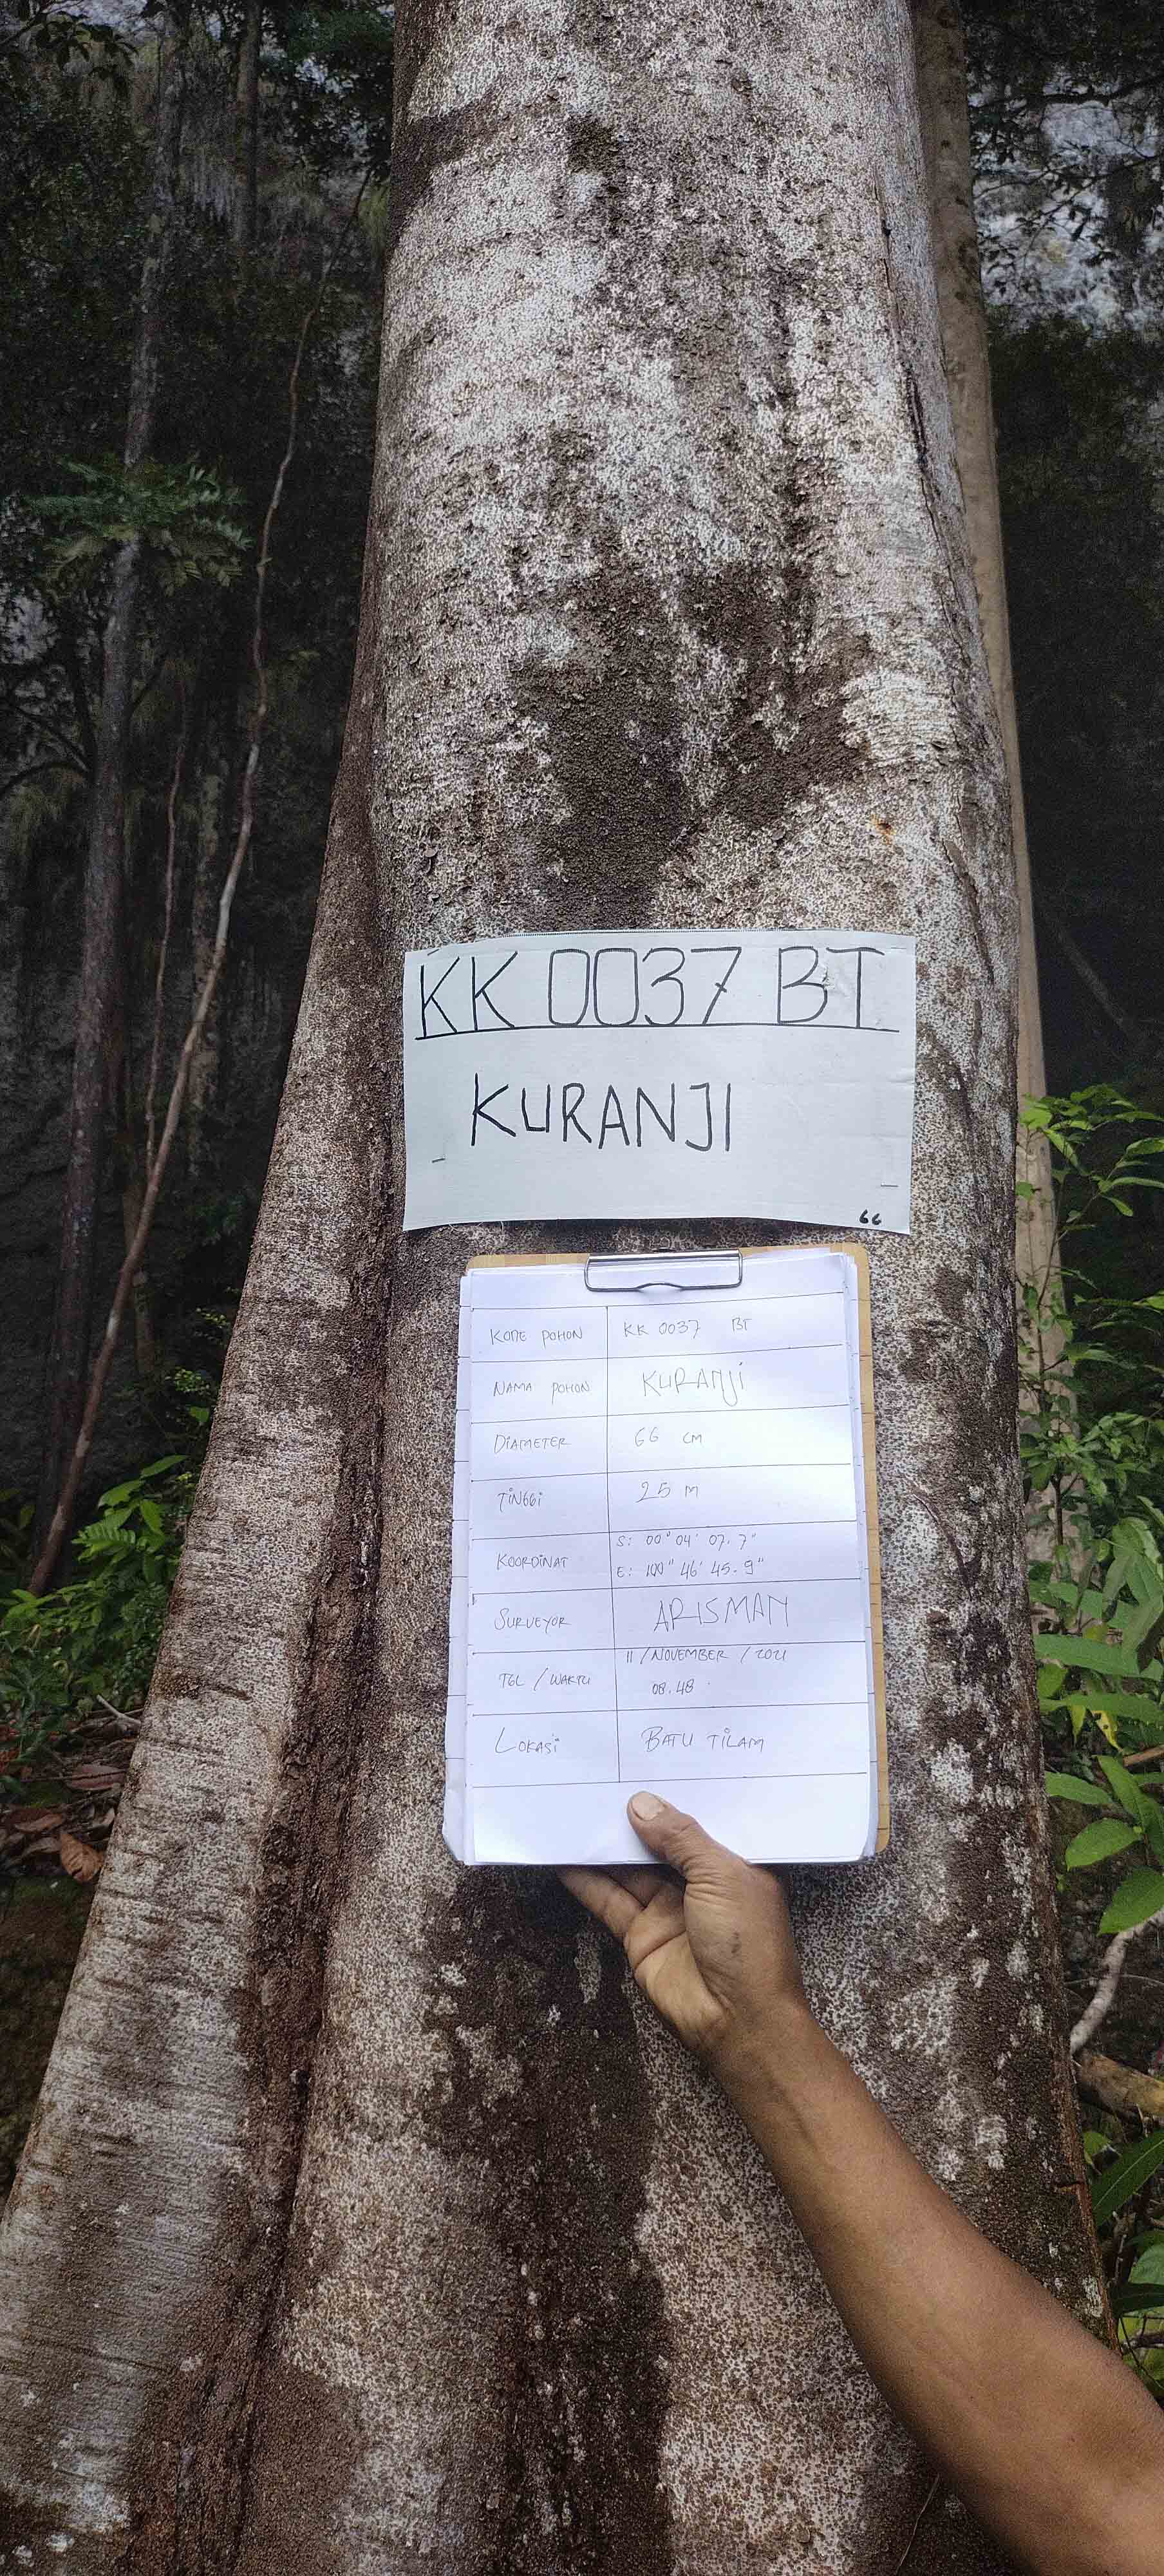 KK 0037 BT
KURANJI
66
KODE POHON KK 0037 BT
NAMA POHON KURANJI
DIAMETER 66 CM
TINGGI 25 M
KOORDINAT S: 00° 04' 07.7"
E: 100" 46' 45.9"
SURVEYOR ARISMAN
TGL / WAKTU 11 / NOVEMBER / 2021
08.48
LOKASI BATU TILAM